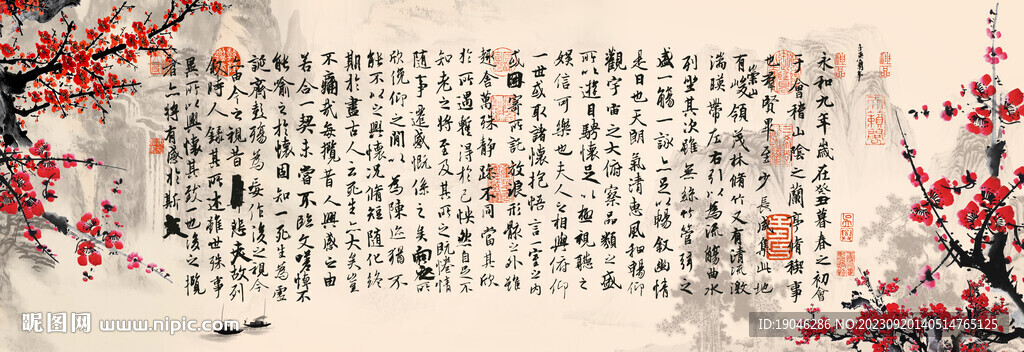 永和九年歲在癸丑暮春之初會
于會稽山陰之蘭亭脩稧事
也羣賢畢至少長咸集此地
有崇山峻領茂林脩竹又有清流激
湍暎帶左右引以為流觴曲水
列坐其次雖無絲竹管弦之
盛一觴一詠亦足以暢敘幽情
是日也天朗氣清惠風和暢仰
觀宇宙之大俯察品類之盛
所以遊目騁懷足以極視聽之
娛信可樂也夫人之相與俯仰
一世或取諸懷抱悟言一室之內
或因寄所託放浪形骸之外雖
趣舍萬殊靜躁不同當其欣
於所遇暫得於己怏然自足不
知老之將至及其所之既惓情
隨事遷感慨係之矣向之所
欣俛仰之間以為陳迹猶不
能不以之興懷況脩短隨化終
期於盡古人云死生亦大矣豈
不痛哉每攬昔人興感之由
若合一契未嘗不臨文嗟悼不
能喻之於懷固知一死生為虛
誕齊彭殤為妄作後之視今
亦由今之視昔悲夫故列
敘時人錄其所述雖世殊事
異所以興懷其致一也後之攬
者亦將有感於斯文
昵图网 www.nipic.com
ID:19046286 NO:20230920140514765125